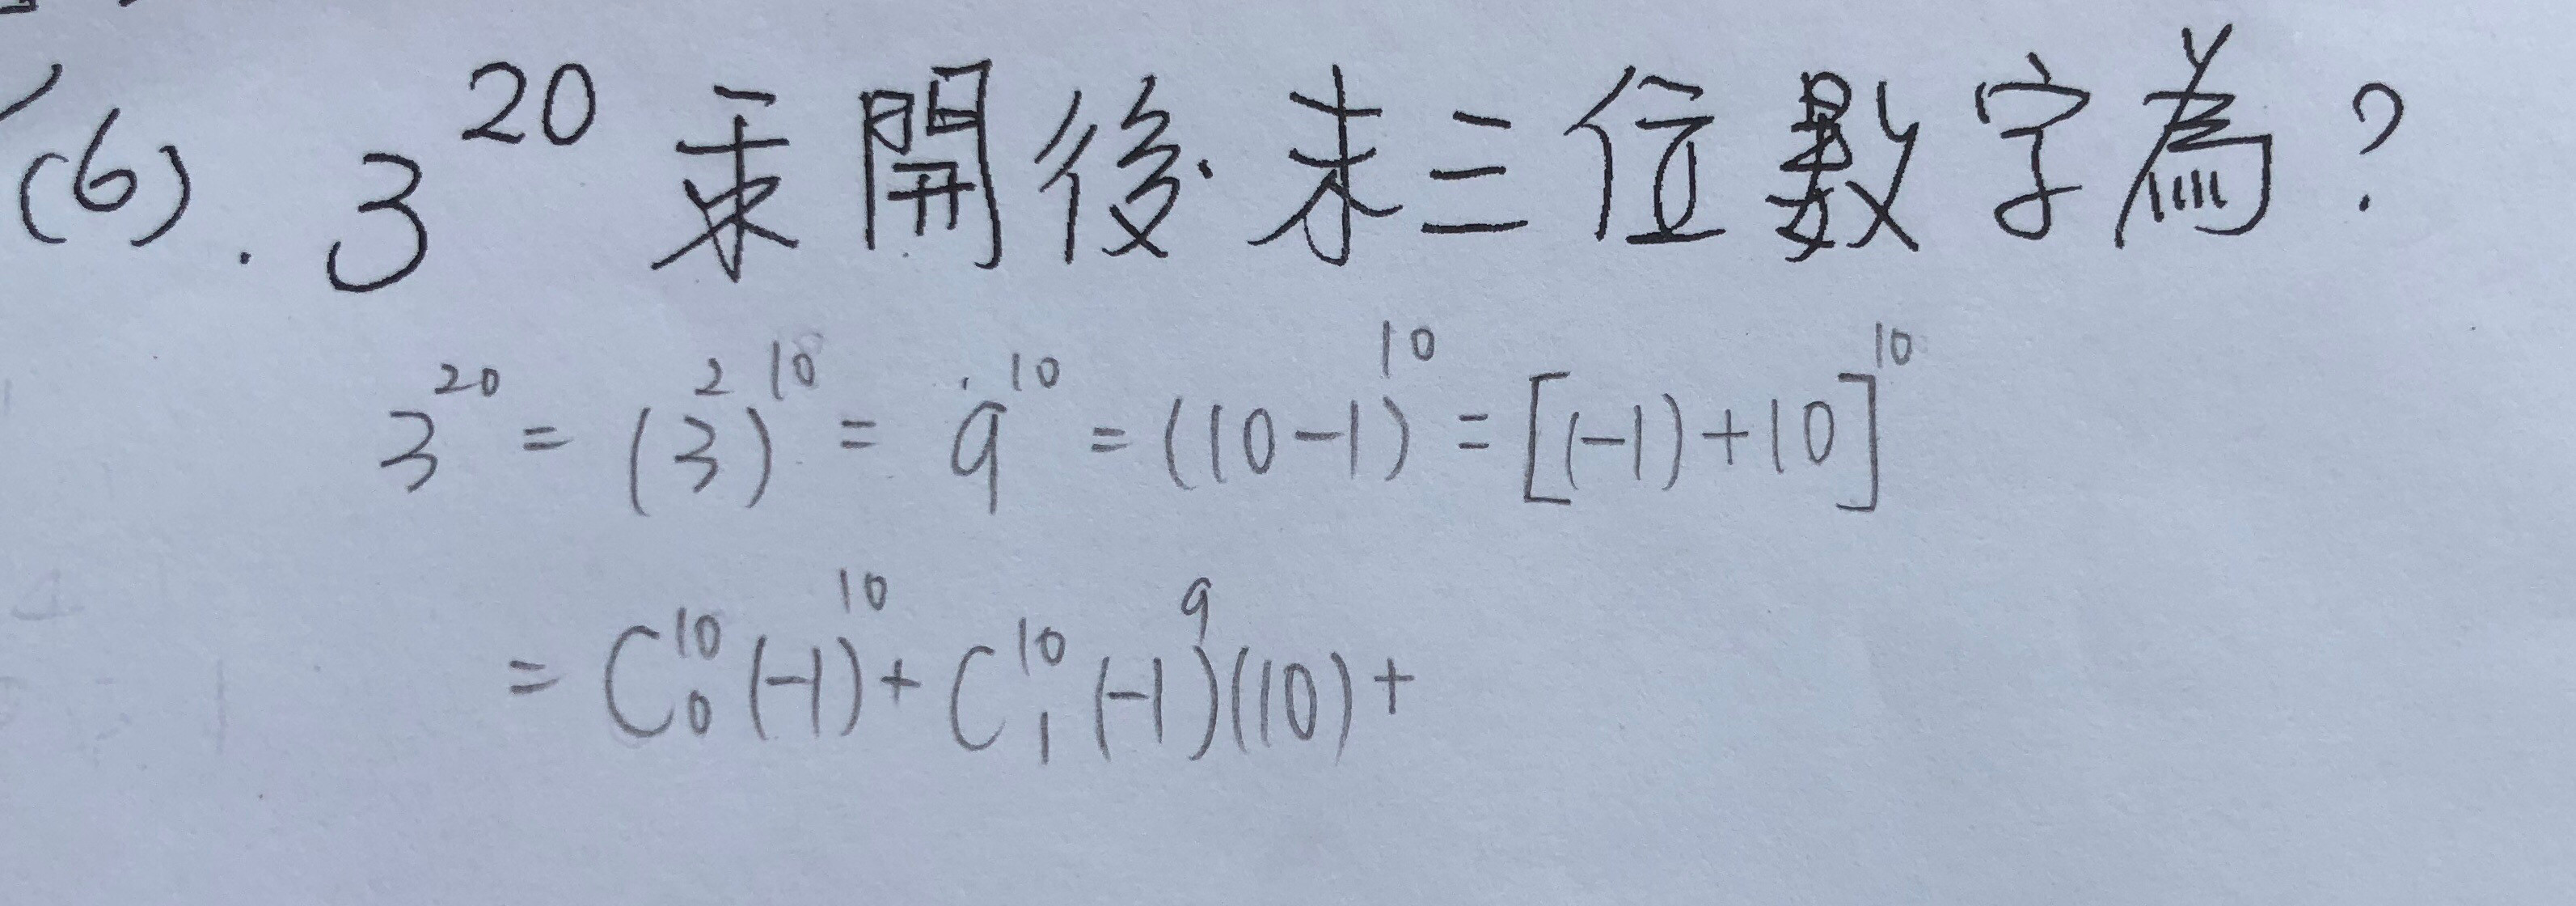 (6). 3^20 乘開後末三位數字為?
3^20 = (3^2)^10 = 9^10 = (10-1)^10 = [(-1)+10]^10
= C^10_0 (-1)^10 + C^10_1 (-1)^9 (10) +